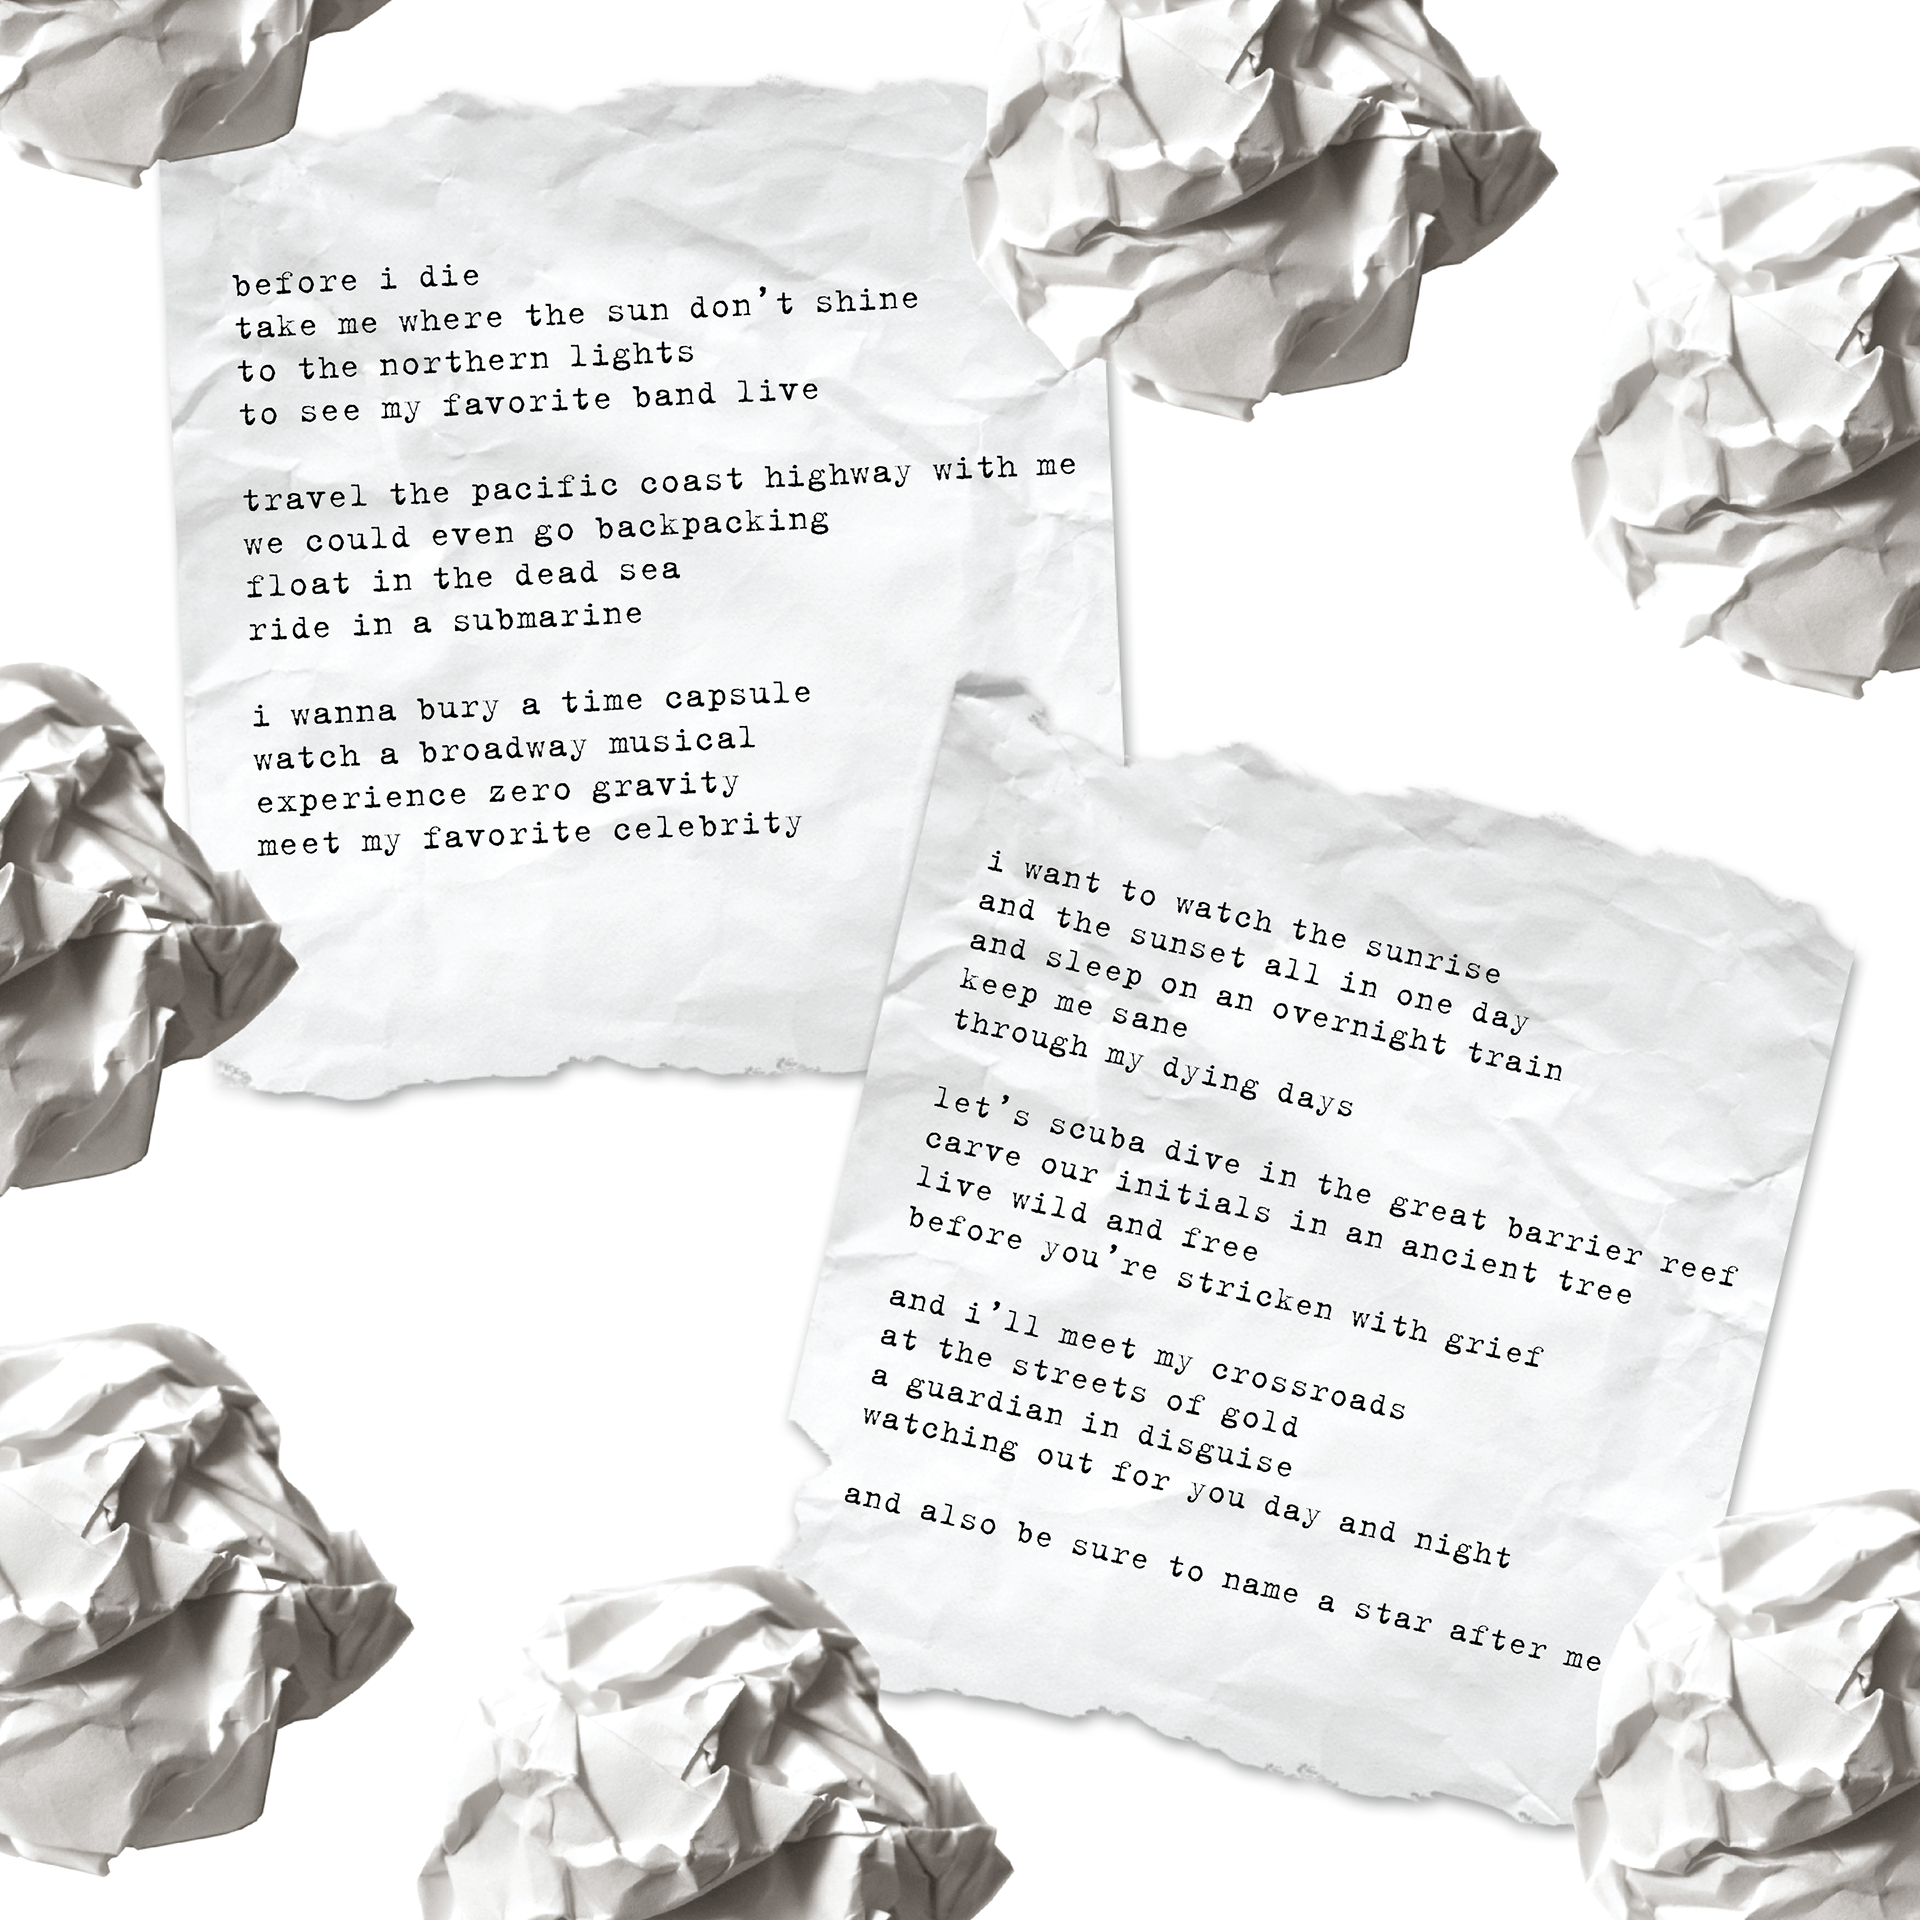 before i die
take me where the sun don't shine
to the northern lights
to see my favorite band live
travel the pacific coast highway with me
we could even go backpacking
float in the dead sea
ride in a submarine
i wanna bury a time capsule
watch a broadway musical
experience zero gravity
meet my favorite celebrity
i want to watch the sunrise
and the sunset all in one day
and sleep on an overnight train
keep me sane
through my dying days
let's scuba dive in the great barrier reef
carve our initials in an ancient tree
live wild and free
before you're stricken with grief
and i'll meet my crossroads
at the streets of gold
a guardian in disguise
watching out for you day and night
and also be sure to name a star after me